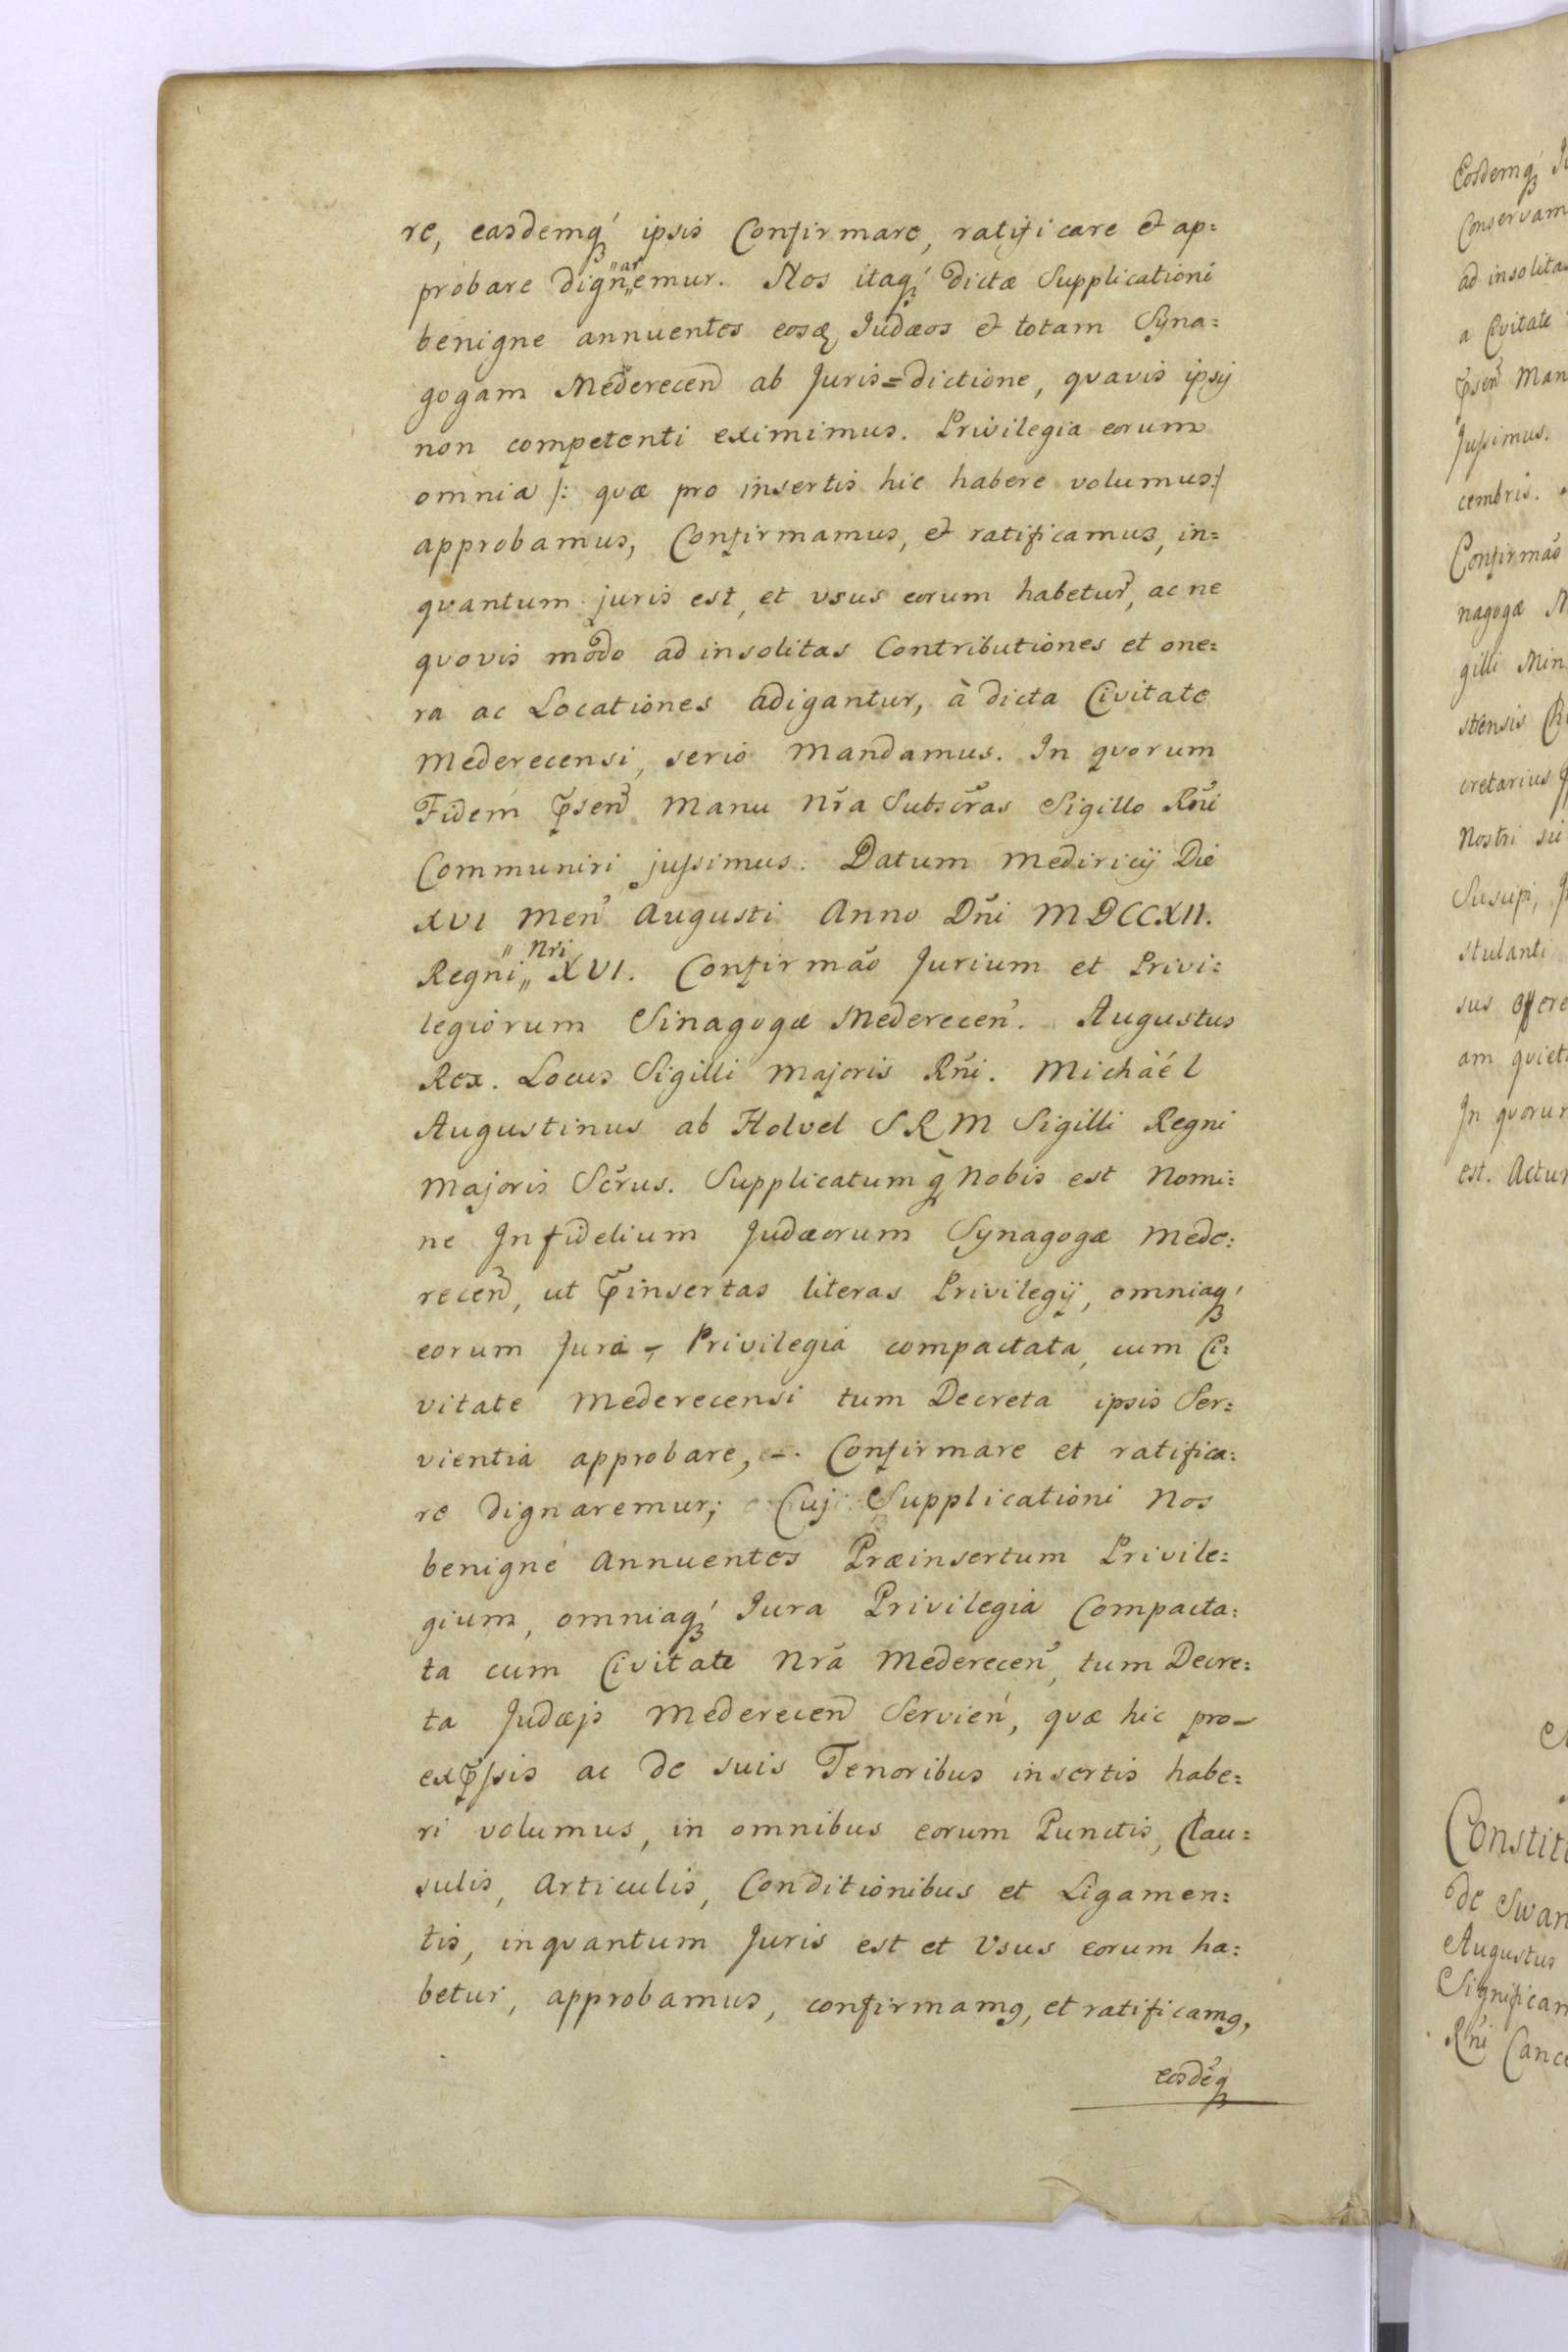 re, easdemq́ȝ ipsis Confirmare, ratificare et ap=
probare dign„ar„emur. Nos itaq́ȝ dictæ Supplicationi
benigne annuentes eosq̨ Judæos et totam Syna=
gogam Mederecen̄ ab Juris=dictione, quavis ipsij
non competenti eximimus. Privilegia eorum
omnia /: quæ pro insertis hic habere volumus:/
approbamus, Confirmamus, et ratificamus, in=
quantum juris est, et vsus eorum habetur, ac ne
quovis modo ad insolitas Contributiones et one=
ra ac Locationes adigantur, à dicta Civitate
Mederecensi, serio Mandamus. In quorum
Fidem p̄sen̄ Manu Nr̄a Subscr̄as Sigillo Rñi
Communiri jussimus. Datum Mediricij Die
XVI Men̄ Augusti Anno Dñi MDCCXII.
Regni „Nri„ XVI. Confirmão Jurium et Privi=
legiorum Sinagogæ Mederecen̄. Augustus
Rex. Locus Sigilli Majoris Rñi. Michäél
Augustinus ab Holvel S R M Sigilli Regni
Majoris Scr̄us. Supplicatum q̀ Nobis est Nomi=
ne Infidelium Judæorum Synagogæ Mede=
recen̄, ut p̄insertas literas Privilegij, omniaq́ȝ
eorum Jura - Privilegia compactata, cum Ci=
vitate Mederecensi tum Decreta ipsis Ser=
vientia approbare, -. Confirmare et ratifica=
re dignaremur; Cuj Supplicationi Nos
benigné Annuentes Præinsertum Privile=
gium, omniaq́ȝ Jura Privilegia Compacta=
ta cum Civitate Nrã Mederecen̄, tum Decre=
ta Judæjs Mederecen̄ Servień, quæ hic pro-
exp̄ssis ac de suis Tenoribus insertis habe=
ri volumus, in omnibus eorum Punctis, Clau=
sulis, Articulis, Conditionibus et Ligamen=
tis, inquantum Juris est et Vsus eorum ha=
betur, approbamus, confirmamꝯ, et ratificamꝯ,
eosdēqȝ
Eosdemq́ȝ
Conservam
ad insolitas
a Civitate
p̄sen̄ Man
Jussimus.
cembris.
Confirmão
nagogæ
gilli Min
stensis
cretarius
Nostri
Suscipi,
stulanti
sus
am quiet
In quorum
est. Actum
Constit
de Swan
Augustus
Significam
Rñi Canc